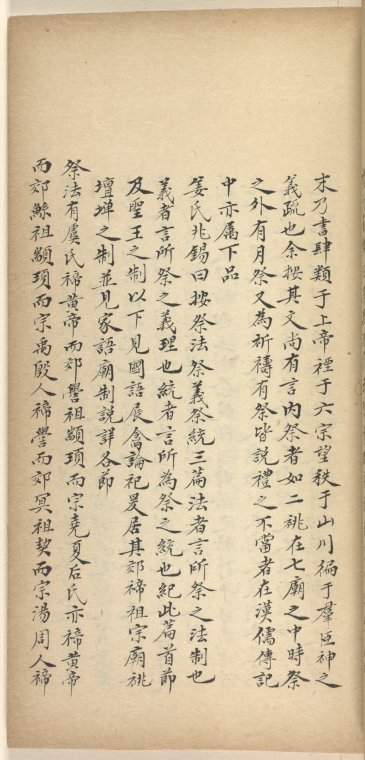 末乃書肆類于上帝禋于六宗望秩于山川徧于羣臣神之
義疏也余按其文尚有言內祭者如二祧在七廟之中時祭
之外有月祭又為祈禱有祭皆說禮之不當者在漢儒傳記
中亦屬下品
姜氏兆錫曰按祭法祭義祭統三篇法者言所祭之法制也
義者言所祭之義理也統者言所為祭之統也紀此篇首節
及聖王之制以下見國語展禽論祀爰居其郊禘祖宗廟祧
壇墠之制並見家語廟制說詳各節
祭法有虞氏禘黃帝而郊嚳祖顓頊而宗堯夏后氏亦禘黃帝
而郊鯀祖顓頊而宗禹殷人禘嚳而郊冥祖契而宗湯周人禘